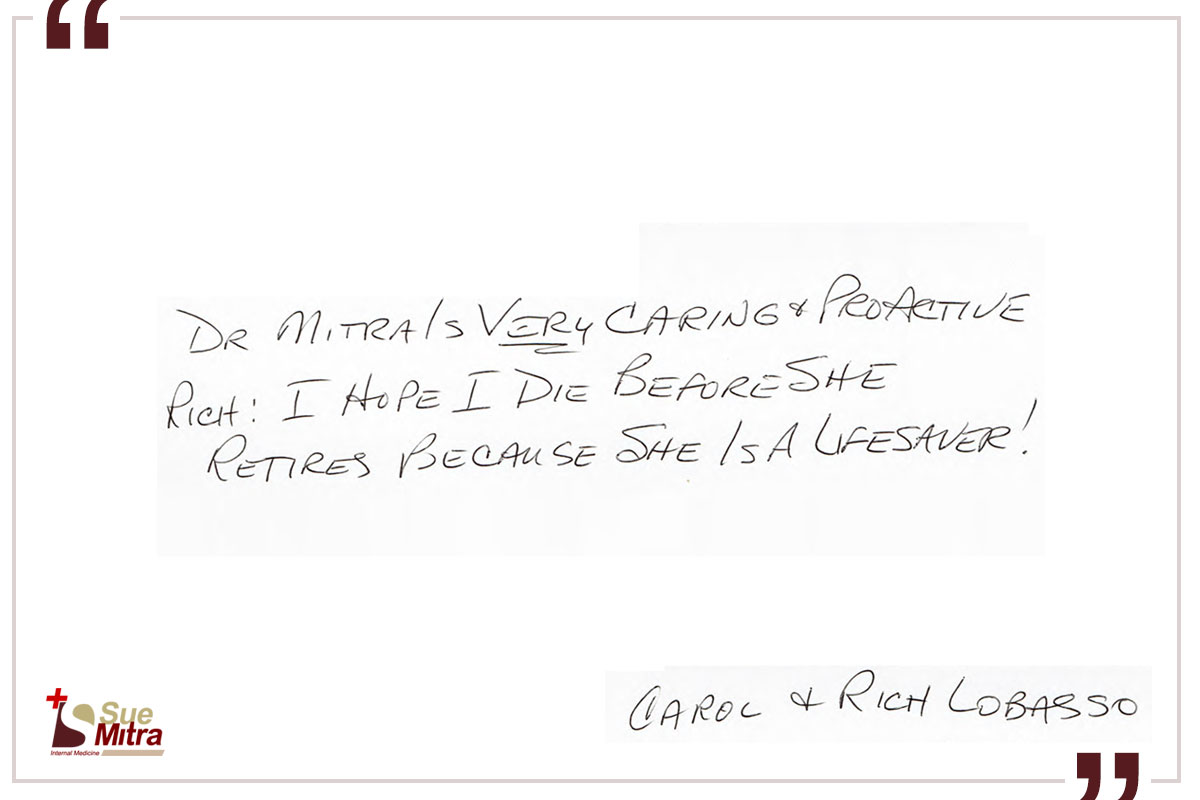 Dr Mitra Is Very Caring & ProActive
Rich: I Hope I Die Before She
Retires Because She Is A Lifesaver!
Carol & Rich Lobasso
Sue
Mitra
Internal Medicine